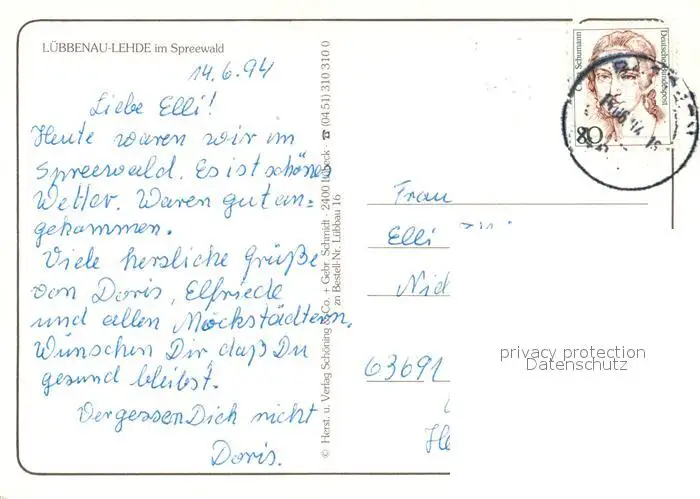 LÜBBENAU-LEHDE im Spreewald
14.6.94
Liebe Elli!
Heute waren wir im
Spreewald. Es ist schönes
Wetter. Waren gut an=
gekommen.
Viele herzliche Grüße
von Doris, Elfriede
und allen Mockstädtern.
Wünschen Dir daß Du
gesund bleibst.
Vergessen Dich nicht
Doris.
© Herst. u. Verlag Schöning & Co. + Gebr. Schmidt · 2400 Lübeck · ☎ (04 51) 310 310 0
zu Bestell-Nr. Lübbau 16
Clara Schumann
Deutsche Bundespost
80
Frau
Elli
63691
privacy protection
Datenschutz